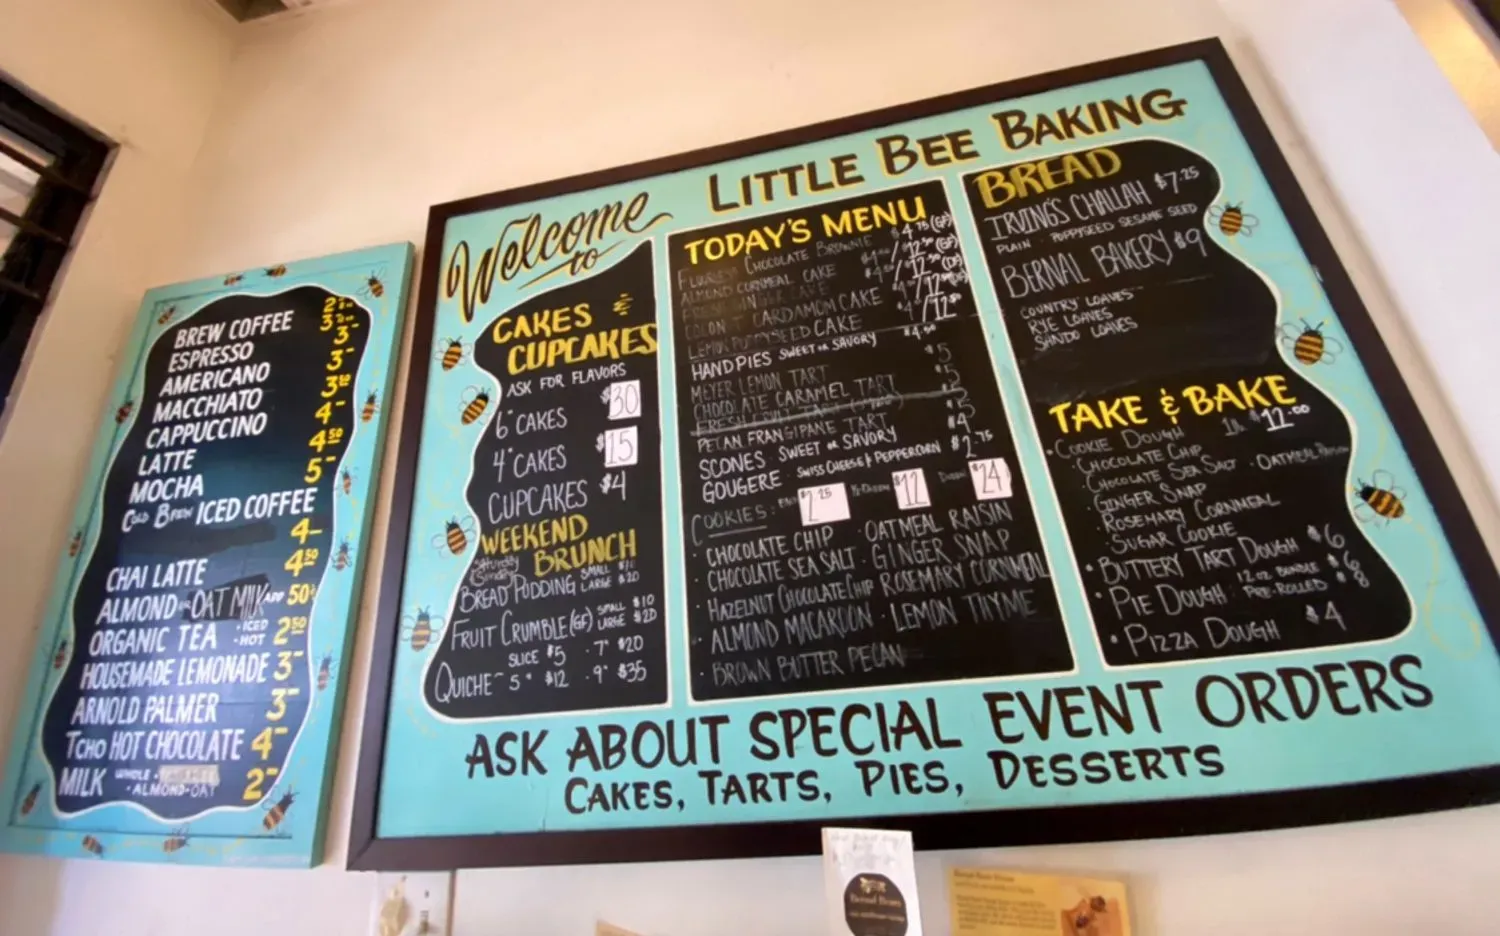 BREW COFFEE
ESPRESSO 3-
AMERICANO 3-
MACCHIATO 3-
CAPPUCCINO 3 50
LATTE 4-
MOCHA 4 50
COLD BREW ICED COFFEE 5-
4-
CHAI LATTE 4 50
ALMOND OR OAT MILK ADD 50¢
ORGANIC TEA · ICED · HOT 2 50
HOUSEMADE LEMONADE 3-
ARNOLD PALMER 3-
TCHO HOT CHOCOLATE 4-
MILK WHOLE · ALMOND · OAT 2-
Welcome to LITTLE BEE BAKING
CAKES & CUPCAKES
ASK FOR FLAVORS
6" CAKES $30
4" CAKES $15
CUPCAKES $4
WEEKEND BRUNCH
Saturday Sunday
BREAD PUDDING SMALL LARGE $20
FRUIT CRUMBLE (GF) SMALL $10 LARGE $20
SLICE $5 · 7" $20
QUICHE ~ 5" $12 · 9" $35
TODAY'S MENU
FLOURLESS CHOCOLATE BROWNIE $4.75 (GF)
ALMOND CORNMEAL CAKE
CARDAMOM CAKE
LEMON POPPYSEED CAKE
HANDPIES SWEET OR SAVORY $4.50
MEYER LEMON TART $5
CHOCOLATE CARAMEL TART $5
PECAN FRANGIPANE TART $5
SCONES SWEET OR SAVORY $4
GOUGERE: SWISS CHEESE & PEPPERCORN $2.75
COOKIES: EACH $2.25 ½ DOZEN $12 DOZEN $24
· CHOCOLATE CHIP · OATMEAL RAISIN
· CHOCOLATE SEA SALT · GINGER SNAP
· HAZELNUT CHOCOLATE CHIP · ROSEMARY CORNMEAL
· ALMOND MACAROON · LEMON THYME
· BROWN BUTTER PECAN
BREAD
IRVING'S CHALLAH $7.25
PLAIN · POPPYSEED SESAME SEED
BERNAL BAKERY $9
COUNTRY LOAVES
RYE LOAVES
SANDO LOAVES
TAKE & BAKE
· COOKIE DOUGH 1 lb. $12.00
· CHOCOLATE CHIP
· CHOCOLATE SEA SALT · OATMEAL RAISIN
· GINGER SNAP
· ROSEMARY CORNMEAL
· SUGAR COOKIE
· BUTTERY TART DOUGH $6
· PIE DOUGH: 12 OZ. BUNDLE $6
PRE-ROLLED $8
· PIZZA DOUGH $4
ASK ABOUT SPECIAL EVENT ORDERS
CAKES, TARTS, PIES, DESSERTS